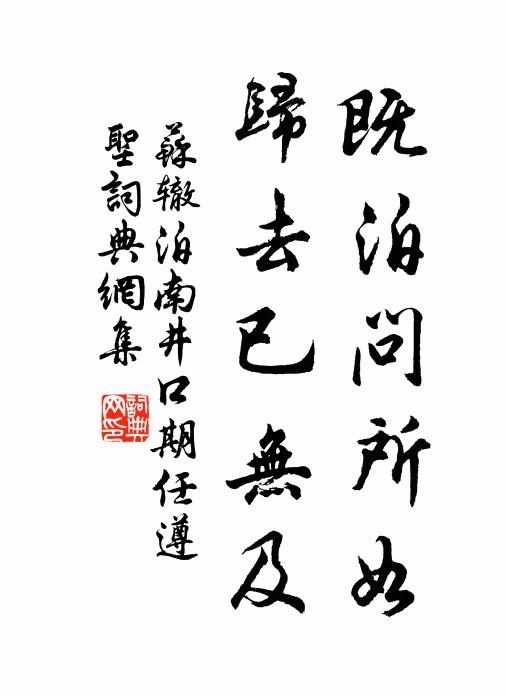 既泊問所如
歸去已無及
蘇辙泊南井口期任遵
聖詞典網集
詞典
网印